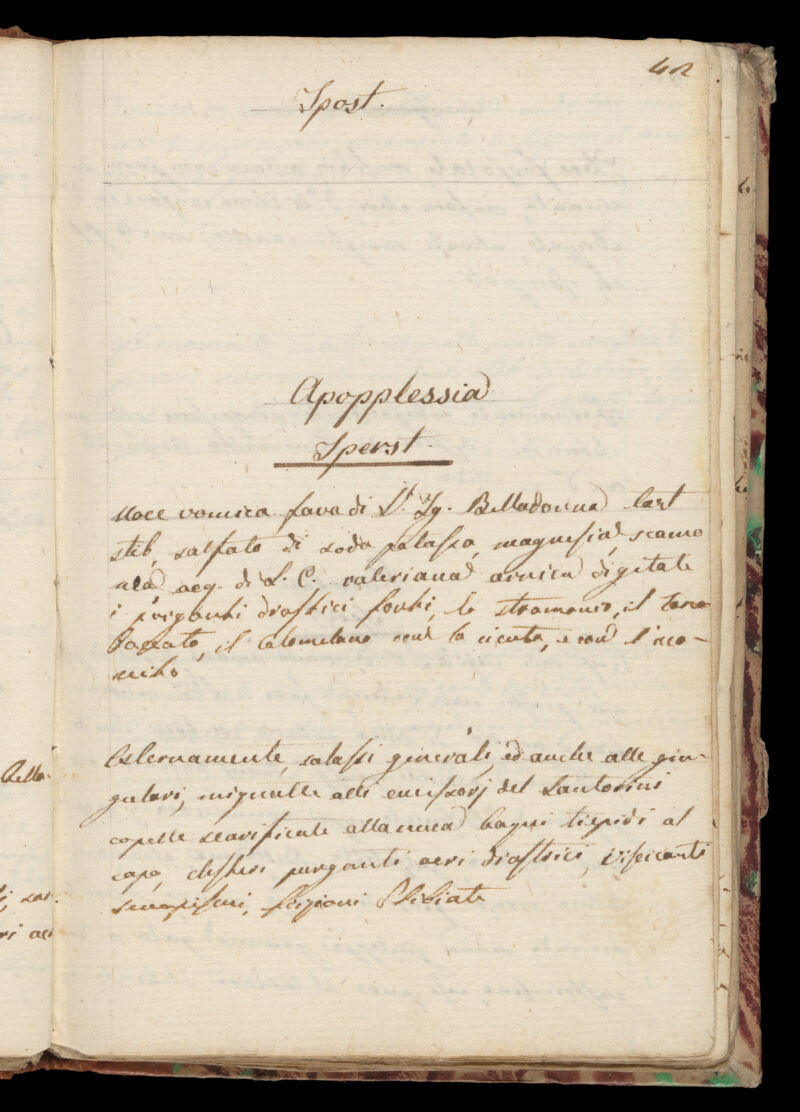 42
Ipost.
Apopplessia
Iperst.
Noce vomica fava di S. Ig. Belladonna tart
stib, solfato di soda potassa, magnesia, scamo
nea, acq. di L. C. valeriana arnica digitale
i purganti drastici forti, lo stramonio, il
il Calomelano con la cicuta, e con l'aco-
nito
Esternamente, salassi generali, ed anche alle giu-
gulari, mignatte alli emissorj del Santorini
copette scarificate alla nuca bagni tiepidi al
capo, clisteri purganti acri drastrici, visicanti
senapismi, frizioni Stibiate